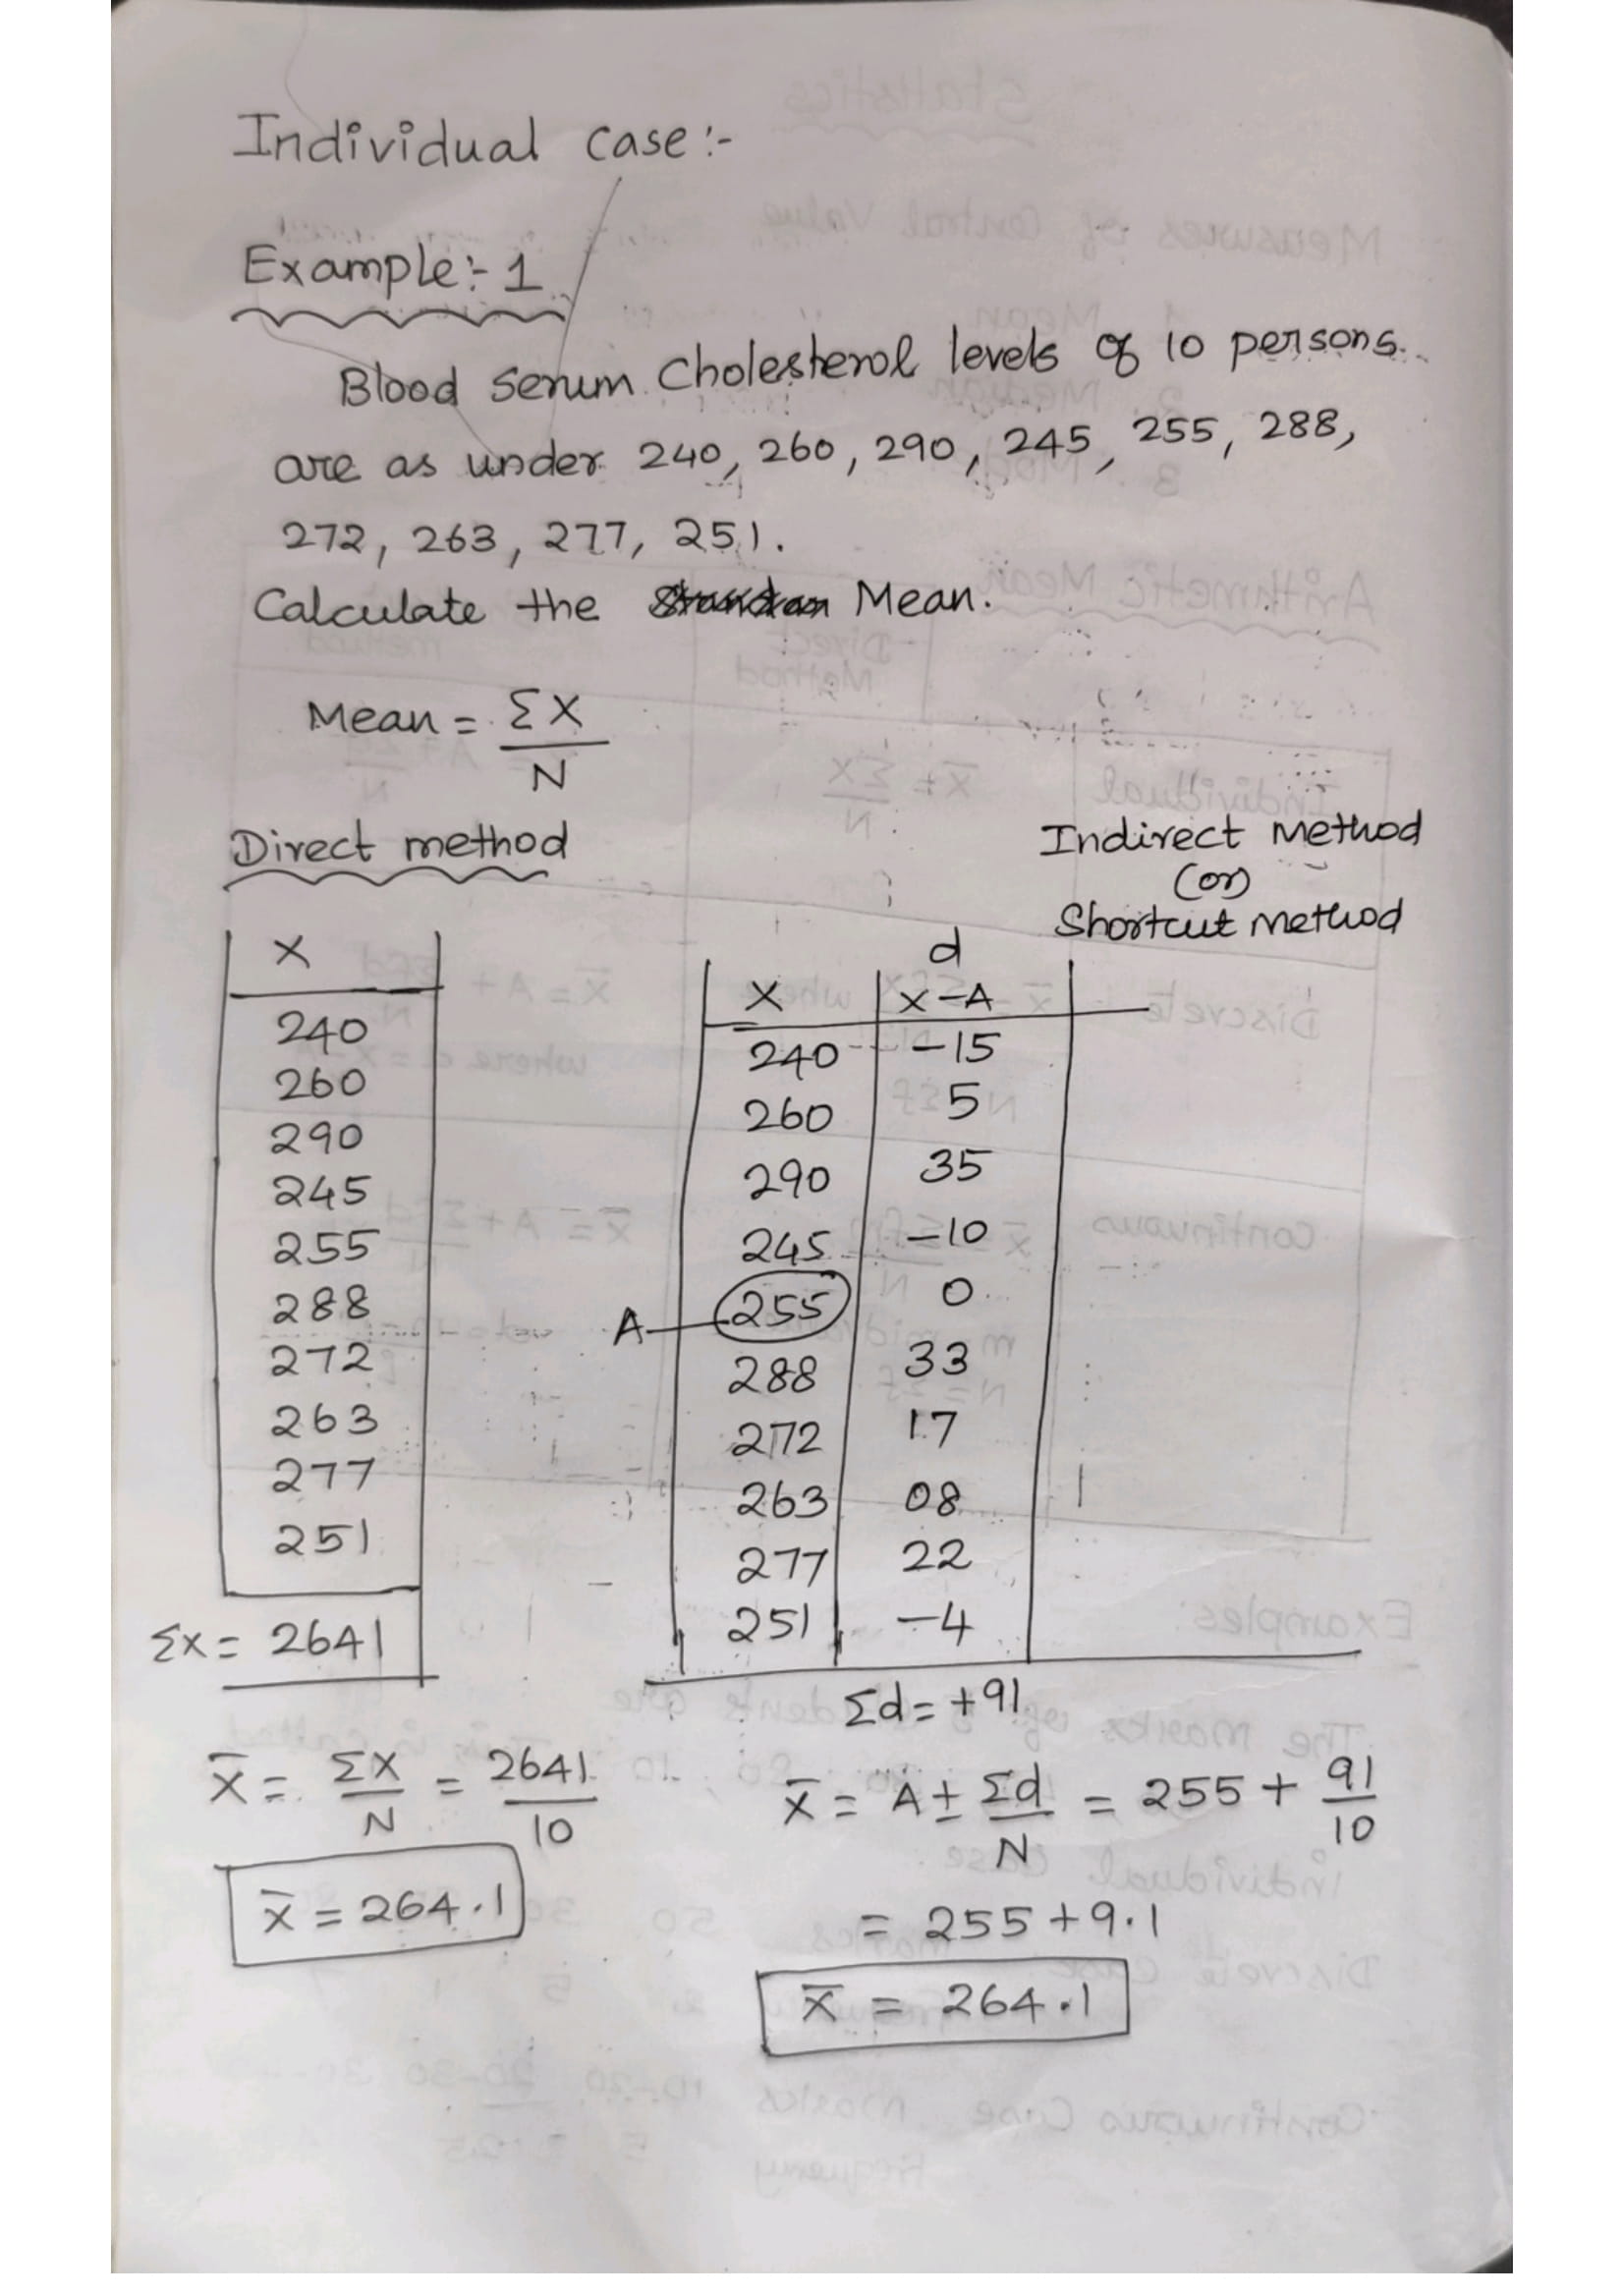 Individual case :-
Example :- 1
Blood Serum Cholesterol levels of 10 persons.
are as under 240, 260, 290, 245, 255, 288,
272, 263, 277, 251.
Calculate the Mean.
Mean = ΣX / N
Direct method
X
240
260
290
245
255
288
272
263
277
251
Σx = 2641
X̄ = ΣX / N = 2641 / 10
x̄ = 264.1
Indirect Method
(or)
Shortcut Method
d
X | X-A
240 | -15
260 | 5
290 | 35
245 | -10
A 255 | 0
288 | 33
272 | 17
263 | 08
277 | 22
251 | -4
Σd = +91
X̄ = A ± Σd / N = 255 + 91 / 10
= 255 + 9.1
X̄ = 264.1